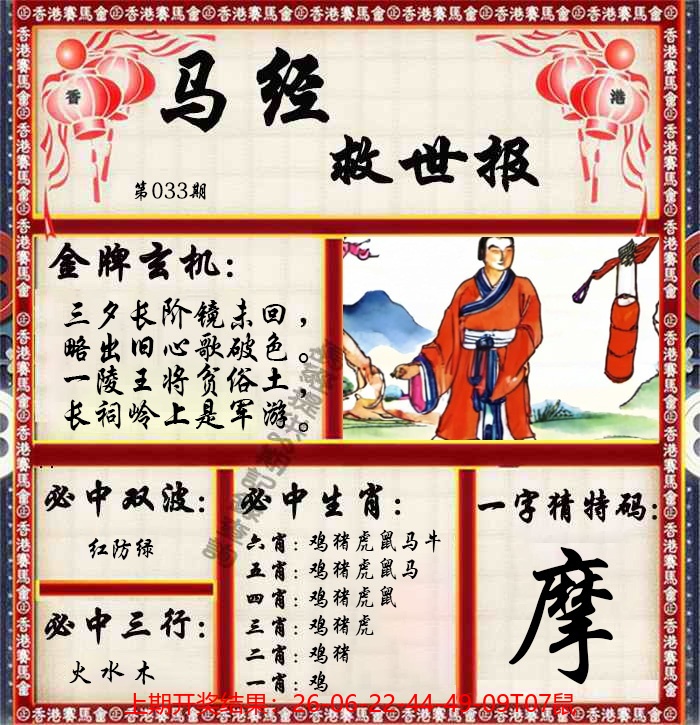 香港賽馬會
香
港
马经
救世报
第033期
金牌玄机：
三夕长阶镜未回，
略出旧心歌破色。
一陵王将贫俗土，
长祠岭上是军游。
必中双波：
红防绿
必中三行：
火水木
必中生肖：
六肖：鸡猪虎鼠马牛
五肖：鸡猪虎鼠马
四肖：鸡猪虎鼠
三肖：鸡猪虎
二肖：鸡猪
一肖：鸡
一字猜特码：
摩
上期开奖结果：26-06-22-44-49-09T07鼠